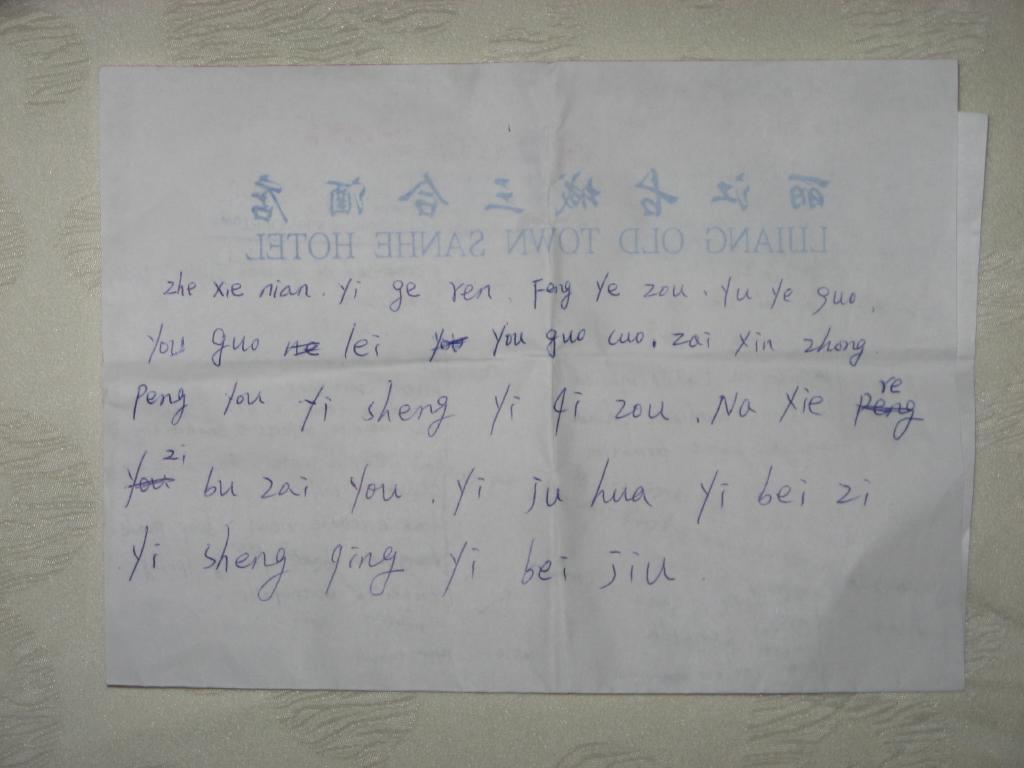 丽江古城三合酒店
LIJIANG OLD TOWN SANHE HOTEL
zhe xie nian. yi ge ren. Feng ye zou. yu ye guo.
you guo lei you guo cuo. zai xin zhong
peng you yi sheng yi qi zou. Na xie re
zi bu zai you. yi ju hua yi bei zi
yi sheng qing yi bei jiu.